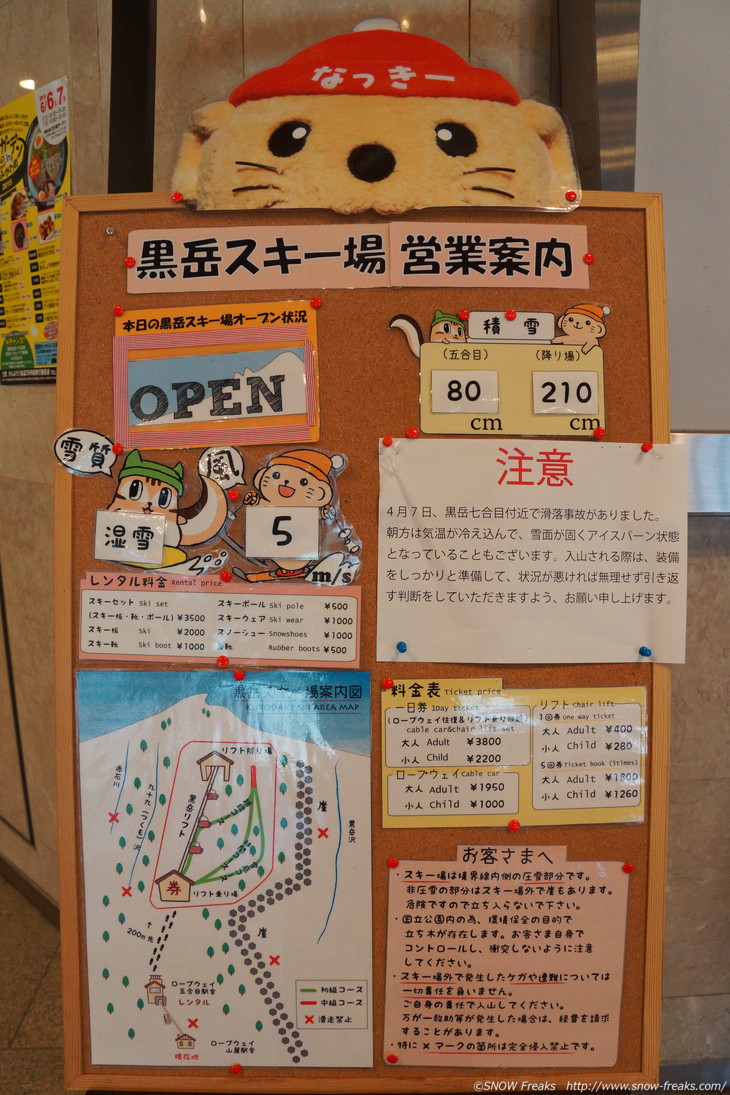 なっきー
黒岳スキー場 営業案内
本日の黒岳スキー場オープン状況
OPEN
積雪
(五合目)
(降り場)
80
cm
210
cm
雪質
湿雪
風
5
m/s
注意
4月7日、黒岳七合目付近で滑落事故がありました。
朝方は気温が冷え込んで、雪面が固くアイスバーン状態
となっていることもございます。入山される際は、装備
をしっかりと準備して、状況が悪ければ無理せず引き返
す判断をしていただきますよう、お願い申し上げます。
レンタル料金 Rental price
スキーセット Ski set
(スキー板・靴・ポール) ¥3500
スキー板 Ski ¥2000
スキー靴 Ski boot ¥1000
スキーポール Ski pole ¥500
スキーウェア Ski wear ¥1000
スノーシュー Snowshoes ¥1000
Rubber boots ¥500
黒岳スキー場案内図
KURODAKE SKI AREA MAP
リフト降り場
赤石川
九十九(つくも)沢
黒岳リフト
崖
黒岳沢
券
リフト乗り場
200m先
崖
ロープウェイ
五合目駅舎
レンタル
ロープウェイ
山麓駅舎
現在地
初級コース
中級コース
滑走禁止
料金表 Ticket price
一日券 1Day ticket
(ロープウェイ往復&リフト乗り放題)
cable car&chair lift set
大人 Adult ¥3800
小人 Child ¥2200
ロープウェイ Cable car
大人 Adult ¥1950
小人 Child ¥1000
リフト Chair lift
1回券 One way ticket
大人 Adult ¥400
小人 Child ¥280
5回券 Ticket book (5times)
大人 Adult ¥1800
小人 Child ¥1260
お客さまへ
・スキー場は境界線内側の圧雪部分です。
非圧雪の部分はスキー場外で崖もあります。
危険ですので立ち入らないで下さい。
・国立公園内の為、環境保全の目的で
立ち木が存在します。お客さま自身で
コントロールし、衝突しないように注意
してください。
・スキー場外で発生したケガや遭難については
一切責任を負いません。
ご自身の責任で入山してください。
万が一救助等が発生した場合は、経費を請求
することがあります。
・特に×マークの箇所は完全侵入禁止です。
©SNOW Freaks http://www.snow-freaks.com/